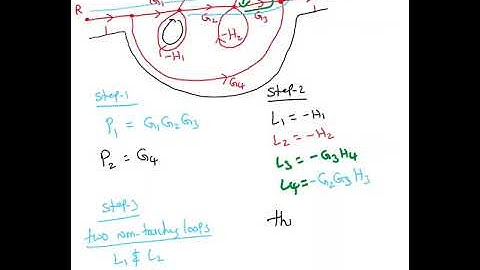 R G₁ G₂ G₃
1 1
-H₁ -H₂
G₄
Step-1
P₁ = G₁G₂G₃
P₂ = G₄
Step-2
L₁ = -H₁
L₂ = -H₂
L₃ = -G₃H₄
L₄ = -G₂G₃H₃
Step-3
two non-touching loops
L₁ & L₂
th